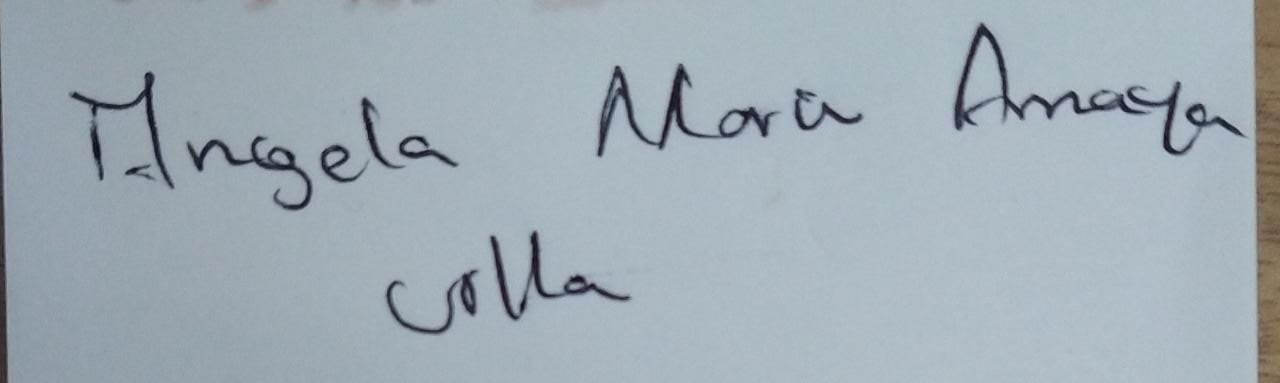 Angela Maria Amaya
Villa